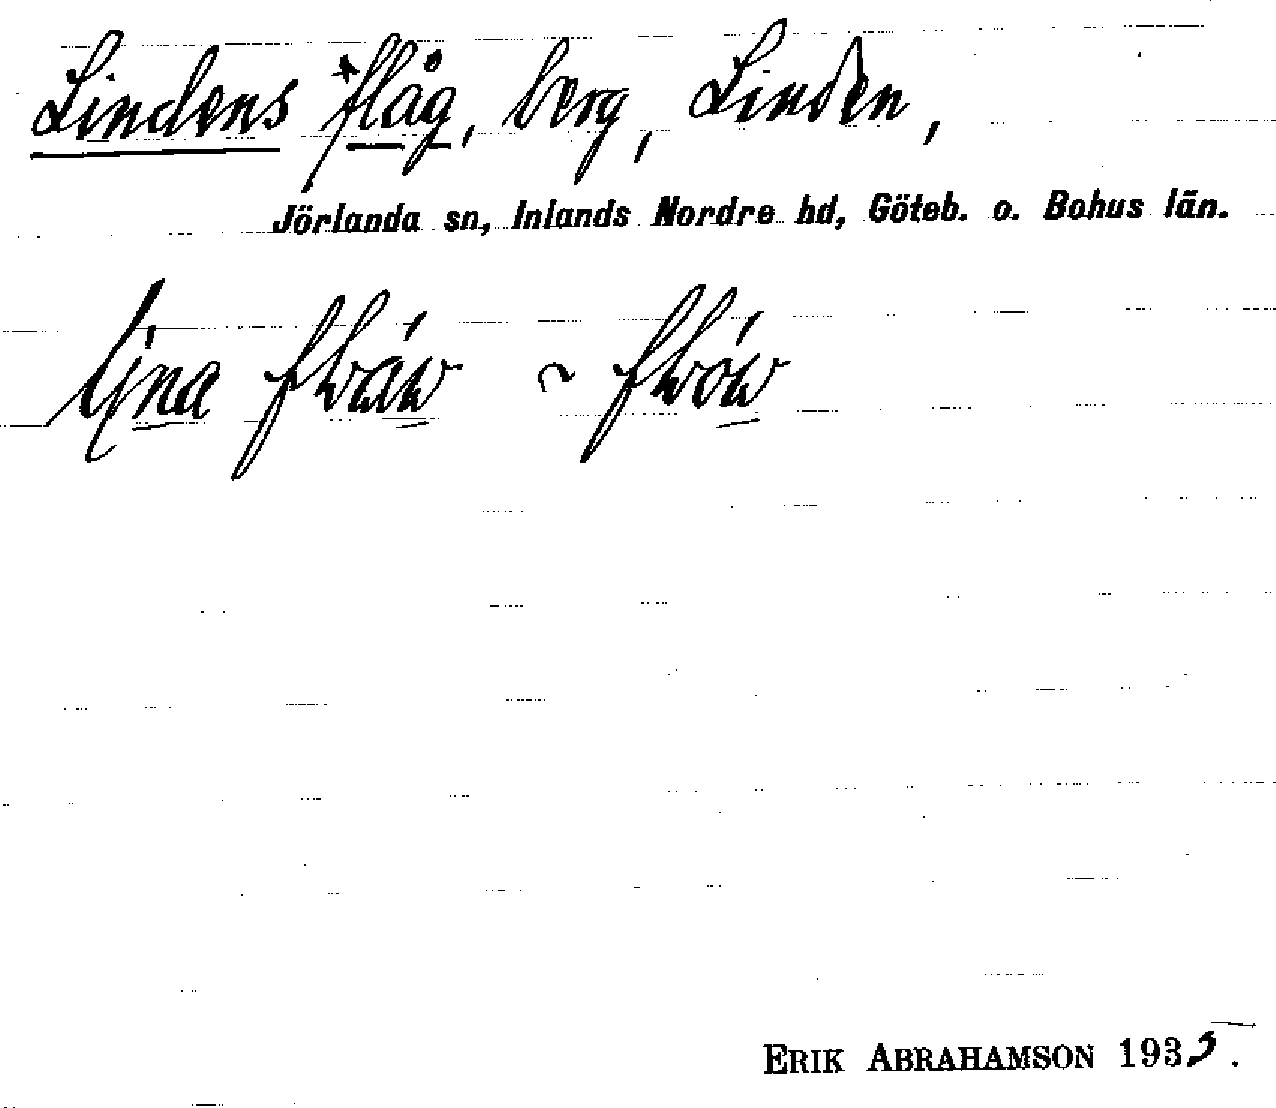 Lindens *flåg, berg, Linden,
Jörlanda sn, Inlands Nordre hd, Göteb. o. Bohus län.
ERIK ABRAHAMSON 1935.